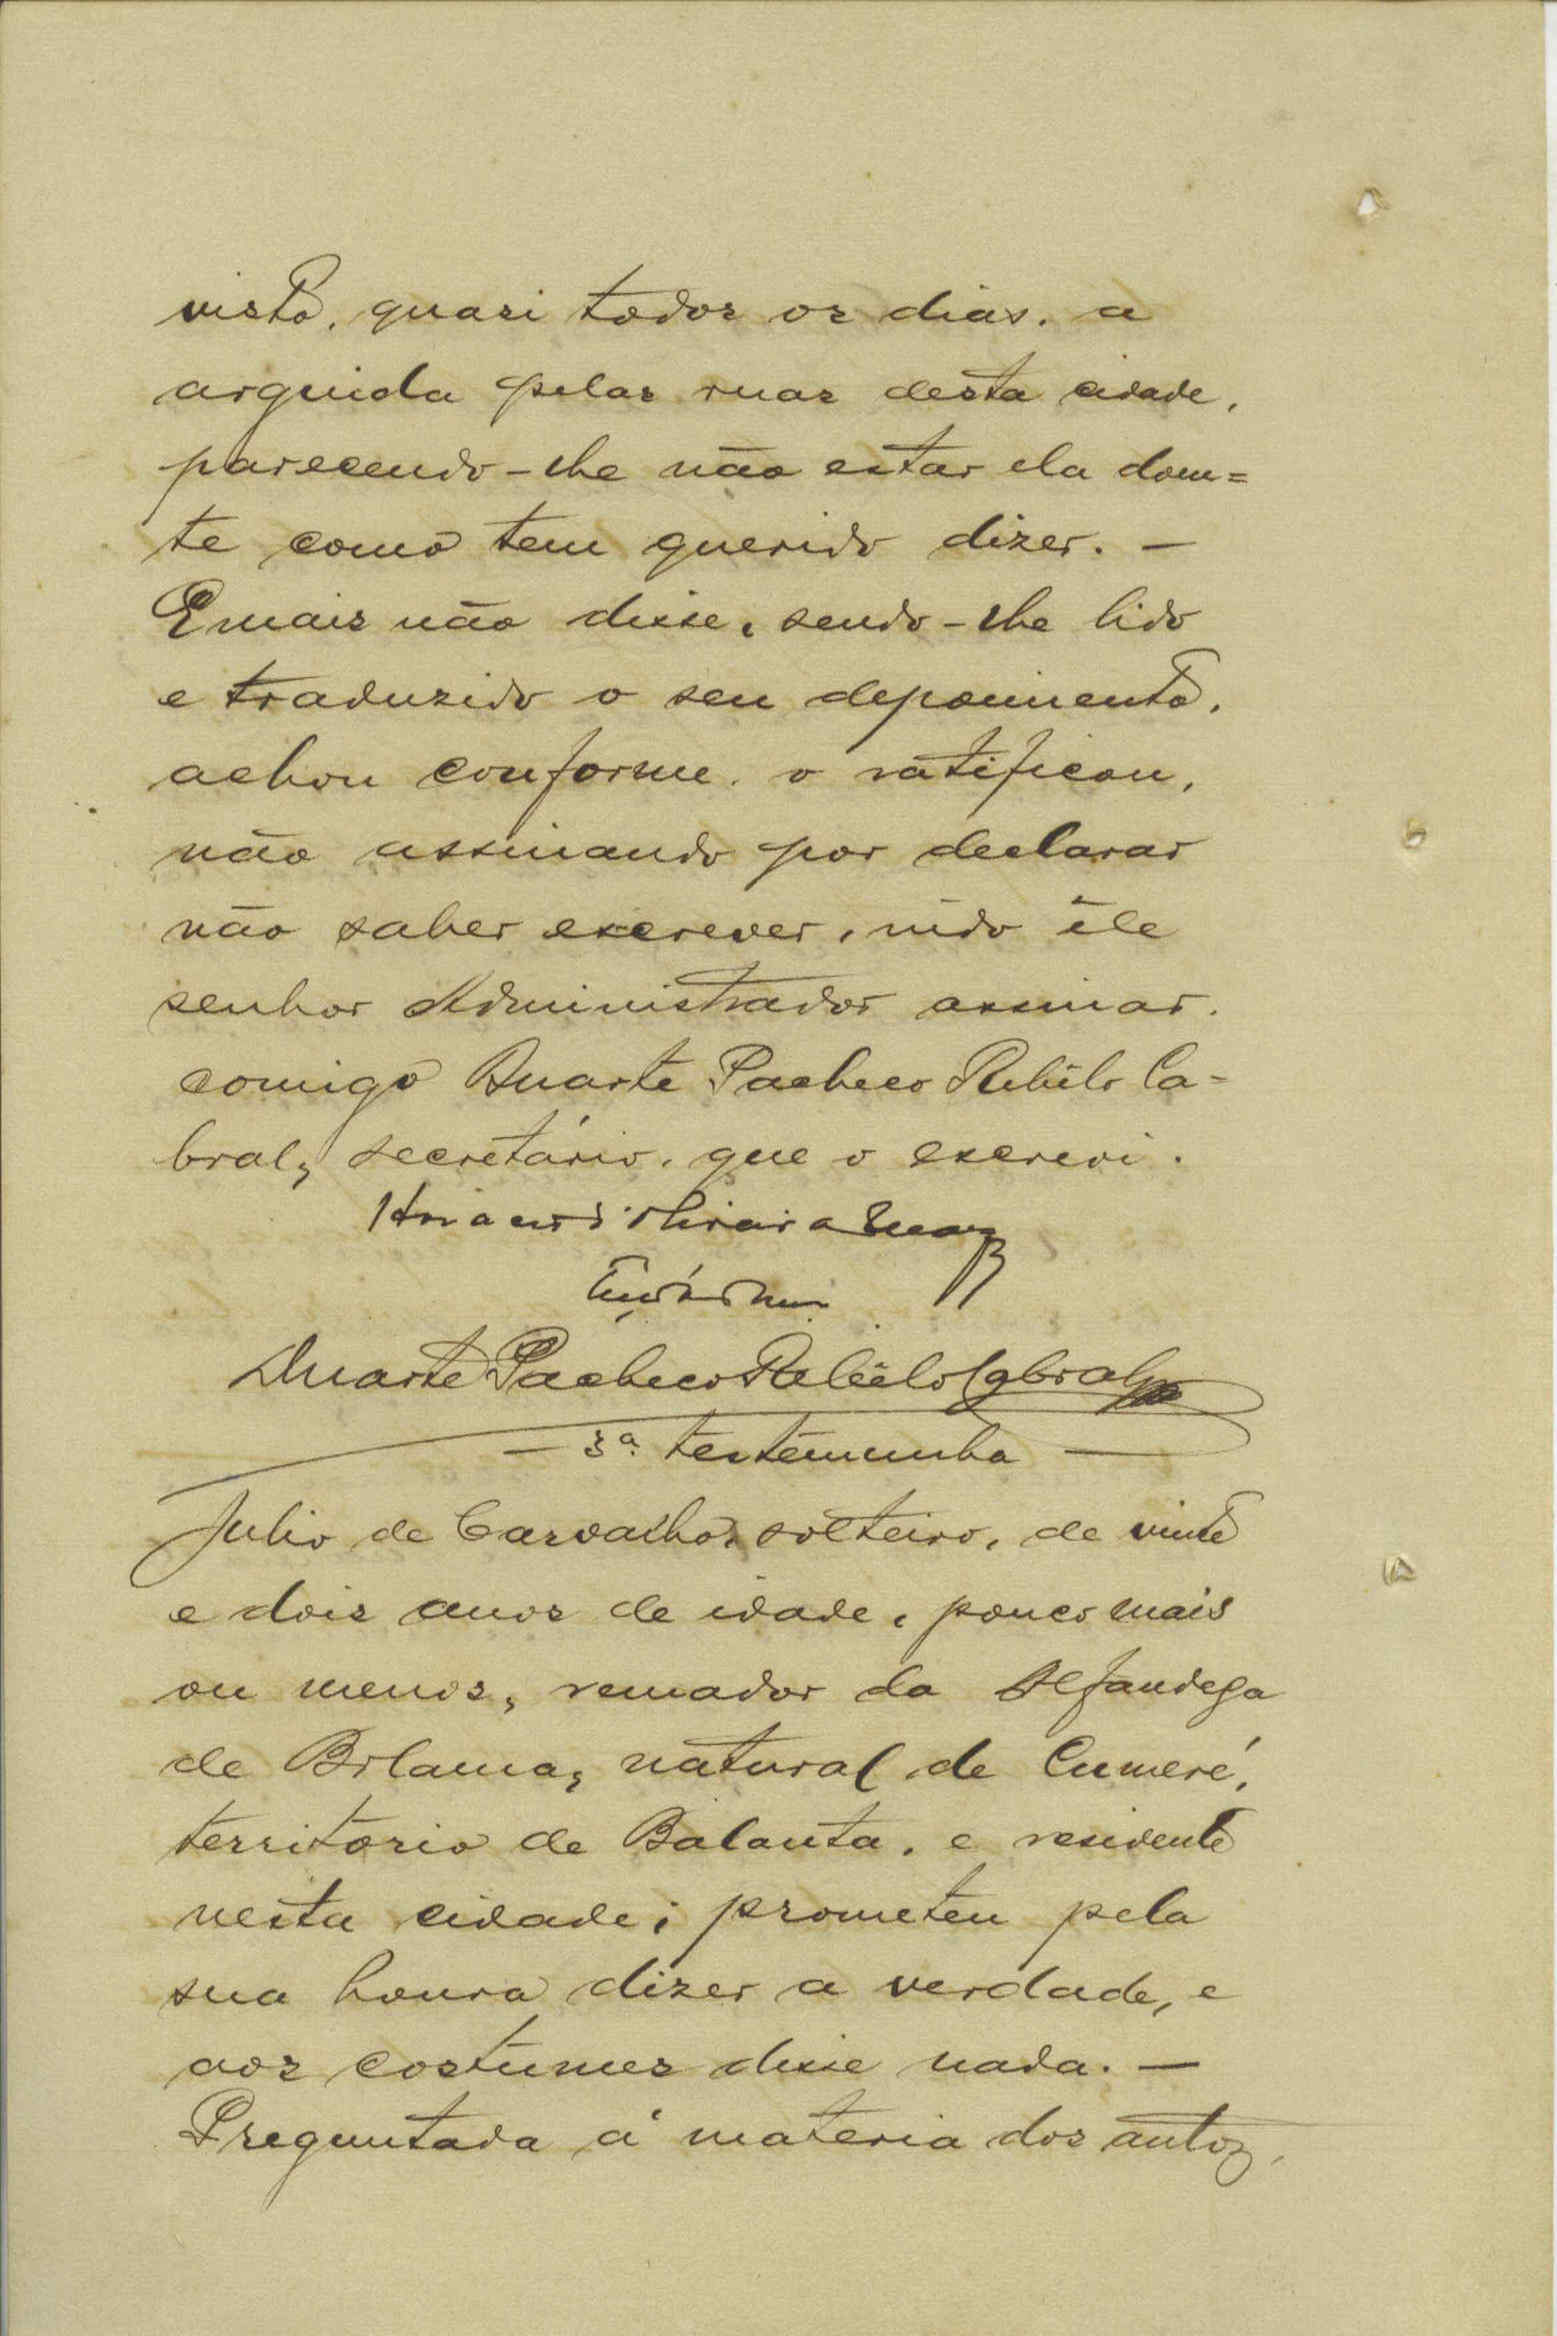 visto, quasi todos os dias, a
arguida pelas ruas desta cidade,
parecendo-lhe não estar ela doen=
te como tem querido dizer. —
E mais não disse, sendo-lhe lido
e traduzido o seu depoimento,
achou conforme, o ratificou,
não assinando por declarar
não saber escrever, indo êle
senhor Administrador assinar,
comigo Duarte Pacheco Rebêlo Ca-
bral, secretário, que o escrevi.
Duarte Pacheco Rebêlo Cabral
— 3ª testemunha —
Julio de Carvalho, solteiro, de vinte
e dois anos de idade, pouco mais
ou menos, remador da Alfandega
de Bolama, natural de Cumeré,
territorio de Balanta, e residente
nesta cidade; prometeu pela
sua honra dizer a verdade, e
aos costumes disse nada. —
Preguntada á materia dos autos,